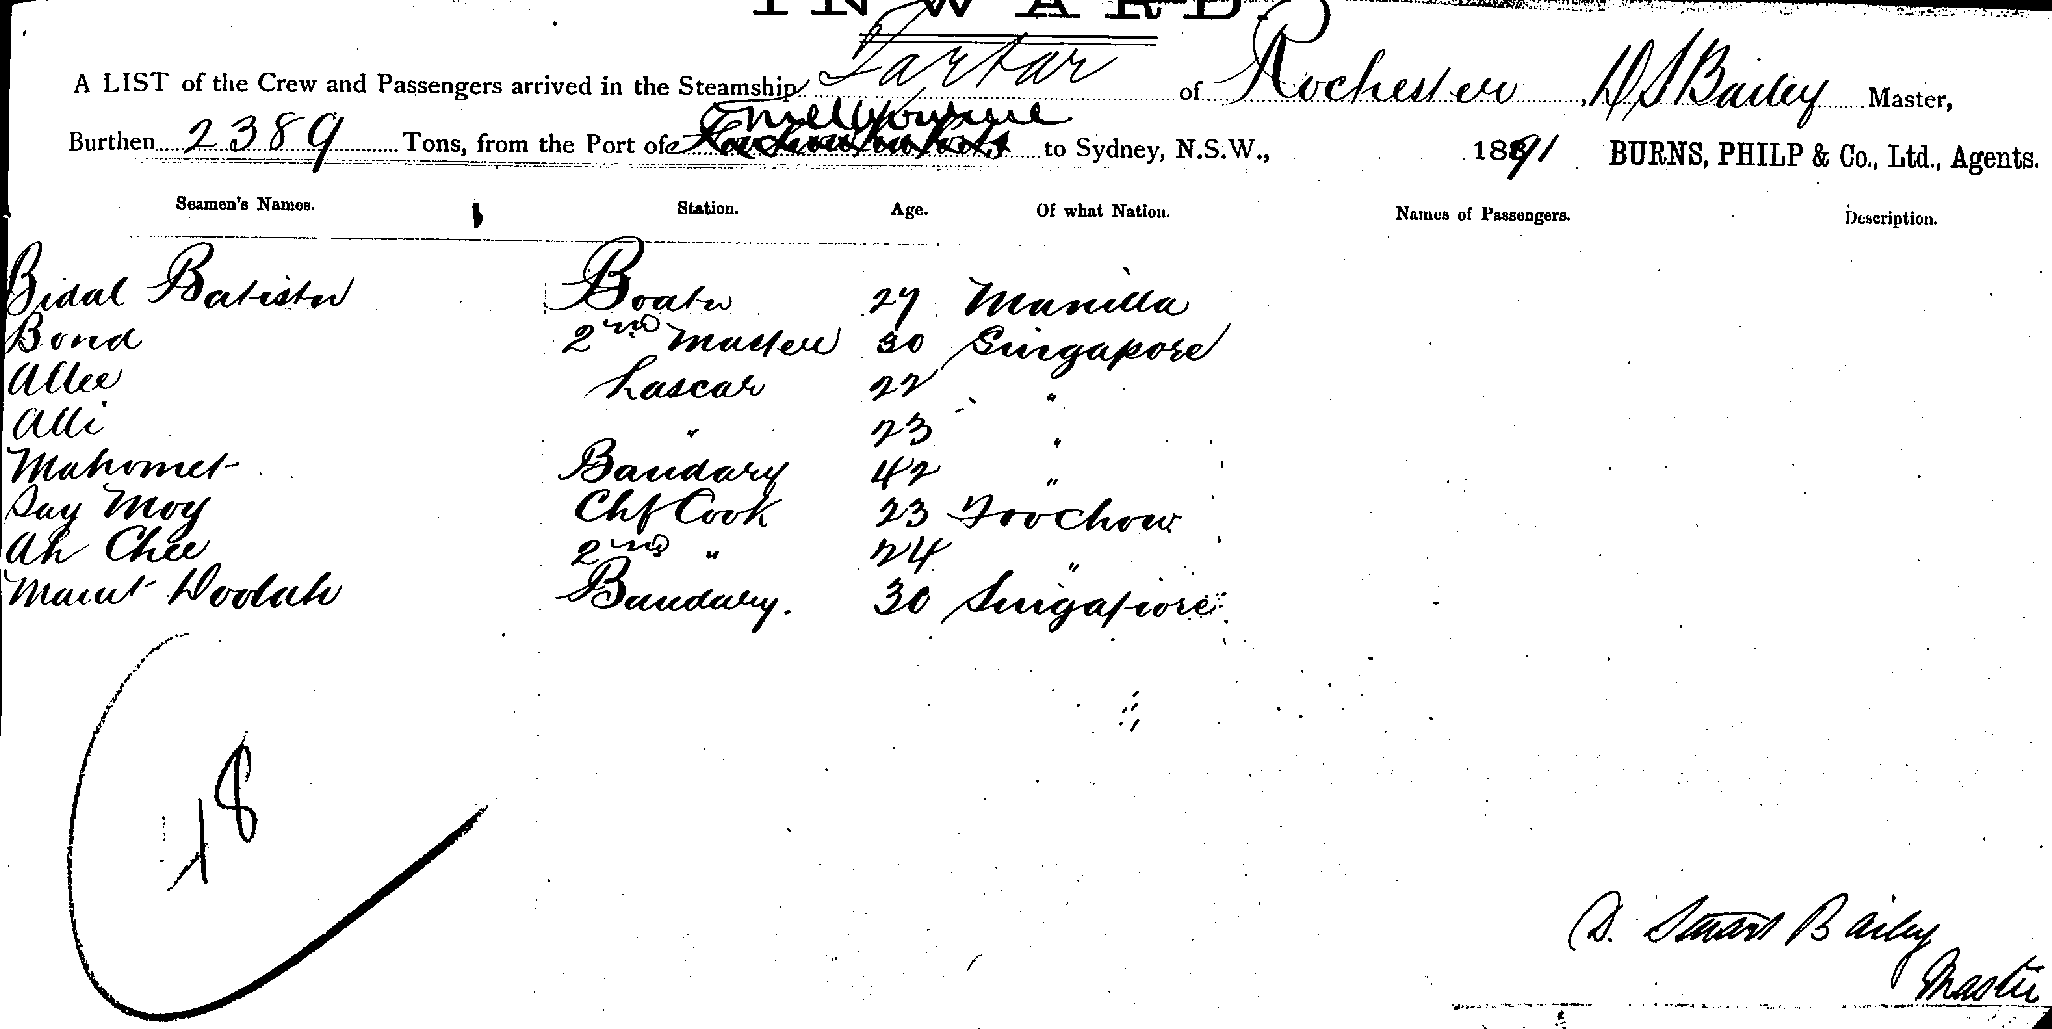 INWARD.
A LIST of the Crew and Passengers arrived in the Steamship Tartar of Rochester, D S Bailey Master,
Burthen 2389 Tons, from the Port of Melbourne to Sydney, N.S.W., 1891 BURNS, PHILP & Co., Ltd., Agents.
Seamen's Names. Station. Age. Of what Nation. Names of Passengers. Description.
Bidal Batista Boatn 27 Manilla
Bond 2nd Master 30 Singapore
Allee Lascar 22 "
Alli " 23 "
Mahomet Bandary 42 "
Say Moy Chf Cook 23 Foochow
Ah Chee 2nd " 24 "
Doolah Bandary. 30 Singapore
48
D. Stuart Bailey
Master